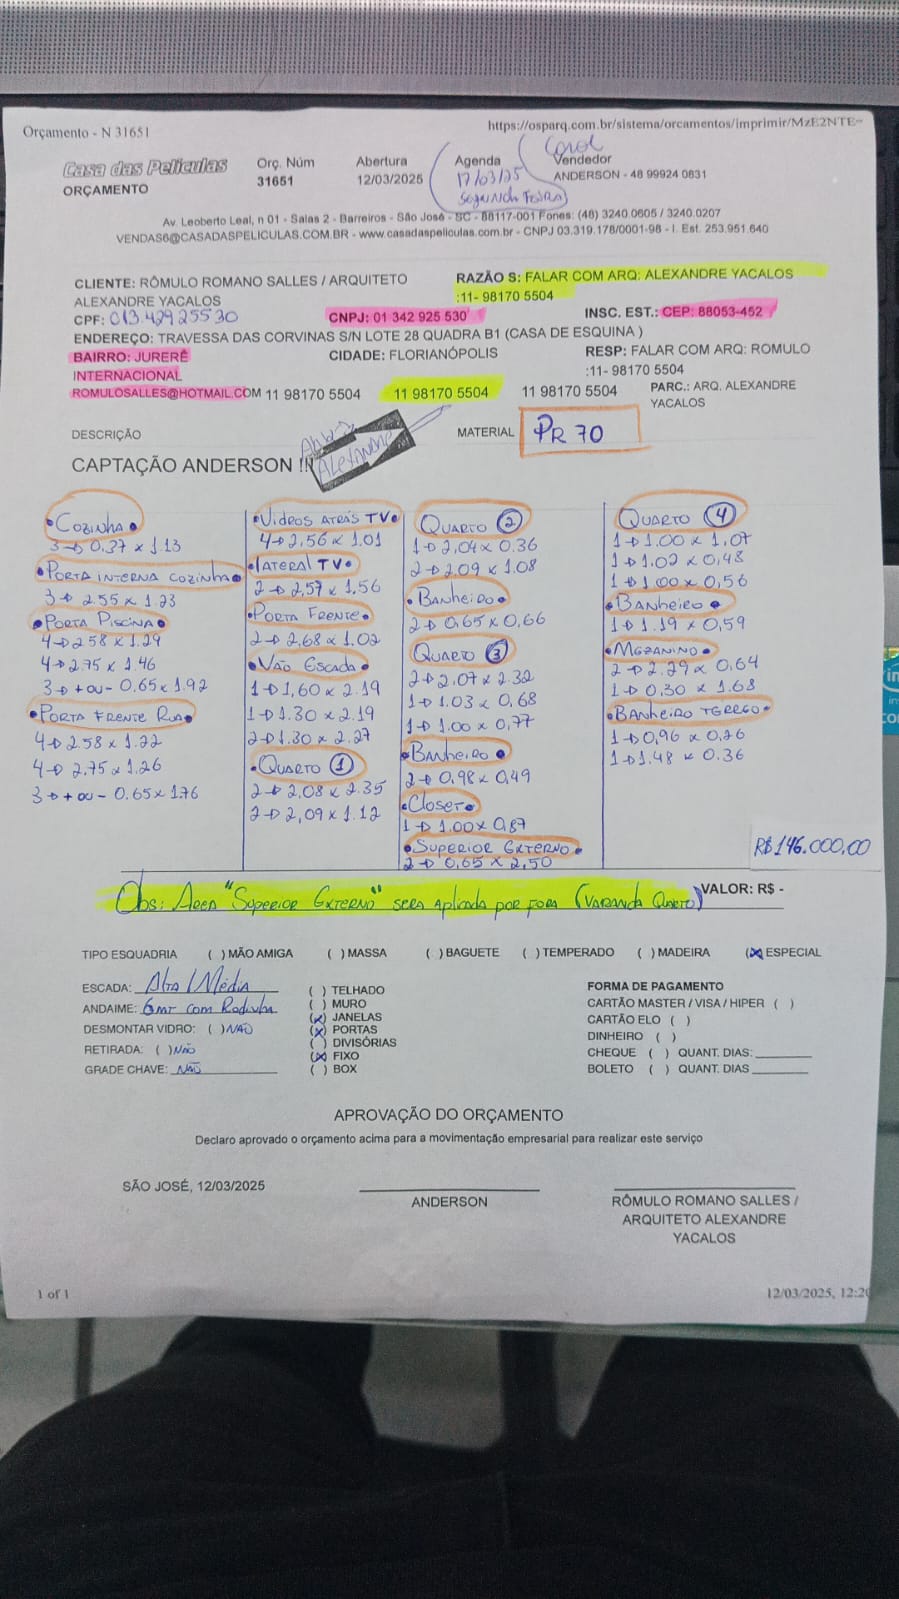 Orçamento - N 31651
https://osparq.com.br/sistema/orcamentos/imprimir/MzE2NTE=
Casa das Películas
ORÇAMENTO
Orç. Núm
31651
Abertura
12/03/2025
Agenda
17/03/25
Segunda Feira
Carol
Vendedor
ANDERSON - 48 99924 0831
Av. Leoberto Leal, n 01 - Salas 2 - Barreiros - São José - SC - 88117-001 Fones: (48) 3240.0605 / 3240.0207
VENDAS6@CASADASPELICULAS.COM.BR - www.casadaspeliculas.com.br - CNPJ 03.319.178/0001-98 - I. Est. 253.951.640
CLIENTE: RÔMULO ROMANO SALLES / ARQUITETO
ALEXANDRE YACALOS
RAZÃO S: FALAR COM ARQ: ALEXANDRE YACALOS
:11- 98170 5504
CPF: 013.42925530
CNPJ: 01 342 925 530
INSC. EST.: CEP: 88053-452
ENDEREÇO: TRAVESSA DAS CORVINAS S/N LOTE 28 QUADRA B1 (CASA DE ESQUINA )
BAIRRO: JURERÊ
INTERNACIONAL
CIDADE: FLORIANÓPOLIS
RESP: FALAR COM ARQ: ROMULO
:11- 98170 5504
ROMULOSALLES@HOTMAIL.COM 11 98170 5504
11 98170 5504
11 98170 5504
PARC.: ARQ. ALEXANDRE
YACALOS
DESCRIÇÃO
Alexandre
MATERIAL
PR 70
CAPTAÇÃO ANDERSON !!!
•Cozinha•
3→ 0.37 x 1.13
•Porta interna cozinha•
3→ 2.55 x 1.23
•Porta Piscina•
4→ 2.58 x 1.29
4→ 2.75 x 1.46
3→ + ou - 0.65 x 1.92
•Porta Frente Rua•
4→ 2.58 x 1.22
4→ 2.75 x 1.26
3→ + ou - 0.65 x 1.76
•Vidros atrás TV•
4→ 2,56 x 1.01
•lateral TV•
2→ 2,57 x 1,56
•Porta Frente•
2→ 2,68 x 1.02
•Vão Escada•
1→ 1,60 x 2.19
1→ 1.30 x 2.19
2→ 1.30 x 2.27
•Quarto 1
2→ 2,08 x 2.35
2→ 2,09 x 1.12
Quarto 2
1→ 2,04 x 0.36
2→ 2.09 x 1.08
•Banheiro•
2→ 0.65 x 0,66
Quarto 3
2→ 2.07 x 2.32
1→ 1.03 x 0,68
1→ 1.00 x 0,77
•Banheiro•
2→ 0,98 x 0,49
•Closet•
1→ 1.00 x 0,87
•Superior Externo•
2→ 0,65 x 2,50
Quarto 4
1→ 1.00 x 1,07
1→ 1.02 x 0,48
1→ 1.00 x 0,56
•Banheiro•
1→ 1.19 x 0,59
•Mezanino•
2→ 2.29 x 0,64
1→ 0,30 x 1.68
•Banheiro Terreo•
1→ 0,96 x 0,26
1→ 1.48 x 0.36
R$ 146.000,00
Obs: Area "Superior Externo" sera aplicada por fora (Varanda Quarto)
VALOR: R$ -
TIPO ESQUADRIA ( ) MÃO AMIGA ( ) MASSA ( ) BAGUETE ( ) TEMPERADO ( ) MADEIRA (X) ESPECIAL
ESCADA: Alta / Média
ANDAIME: 6mt com Rodinha
DESMONTAR VIDRO: ( ) Não
RETIRADA: ( ) Não
GRADE CHAVE: Não
( ) TELHADO
( ) MURO
(X) JANELAS
(X) PORTAS
( ) DIVISÓRIAS
(X) FIXO
( ) BOX
FORMA DE PAGAMENTO
CARTÃO MASTER / VISA / HIPER ( )
CARTÃO ELO ( )
DINHEIRO ( )
CHEQUE ( ) QUANT. DIAS:
BOLETO ( ) QUANT. DIAS
APROVAÇÃO DO ORÇAMENTO
Declaro aprovado o orçamento acima para a movimentação empresarial para realizar este serviço
SÃO JOSÉ, 12/03/2025
ANDERSON
RÔMULO ROMANO SALLES /
ARQUITETO ALEXANDRE
YACALOS
1 of 1
12/03/2025, 12:2